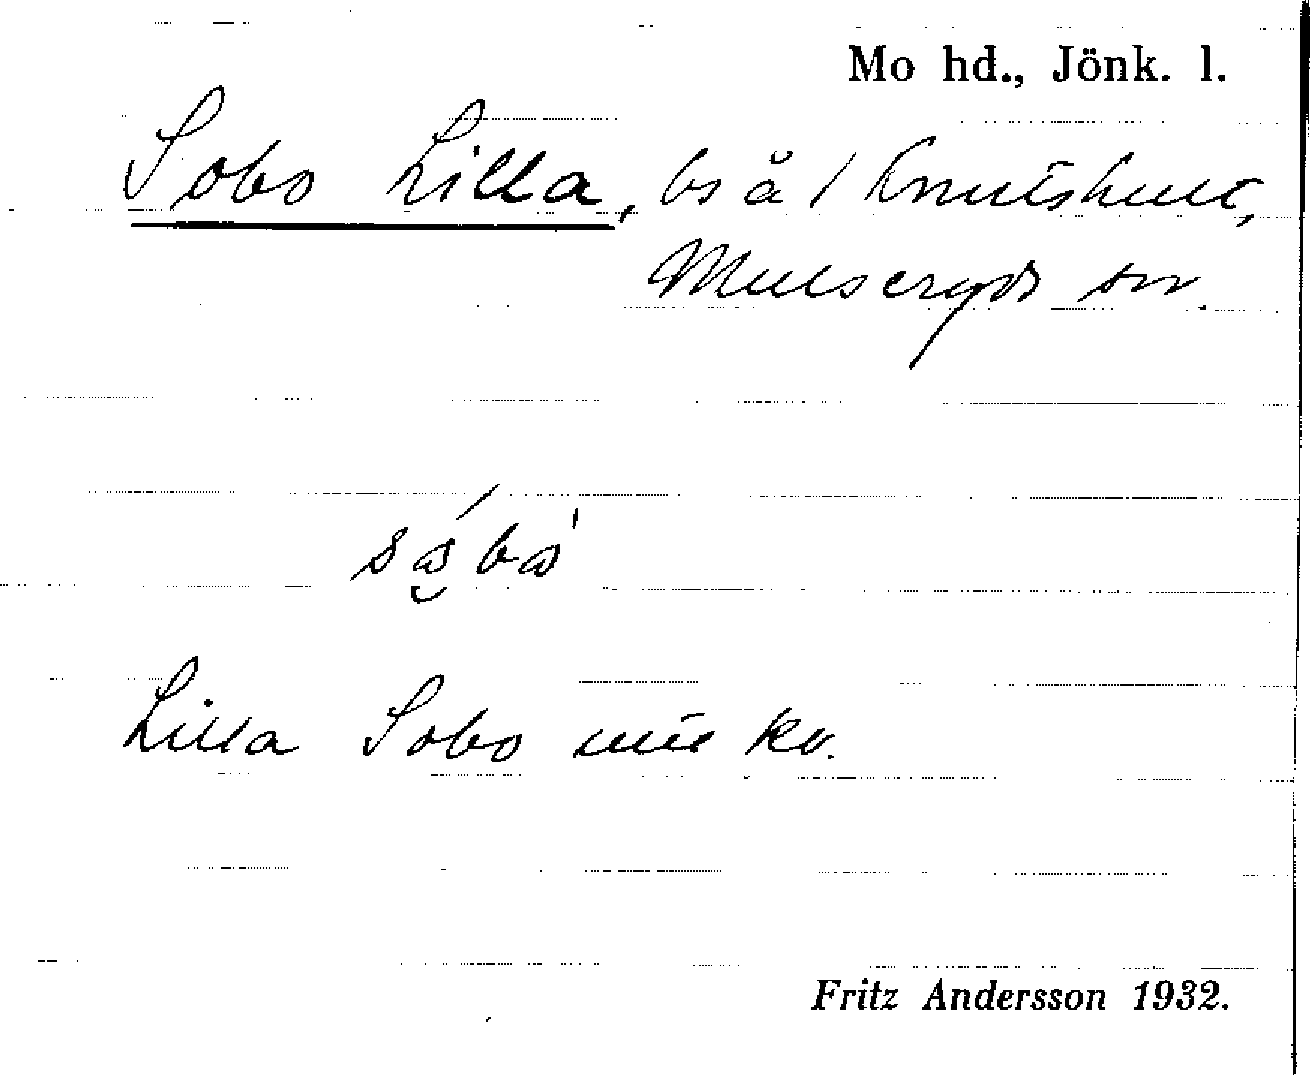 Mo hd., Jönk. l.
Sobo Lilla, bs å / Knutshult,
Mulseryds sn.
Lilla Sobo kv.
Fritz Andersson 1932.